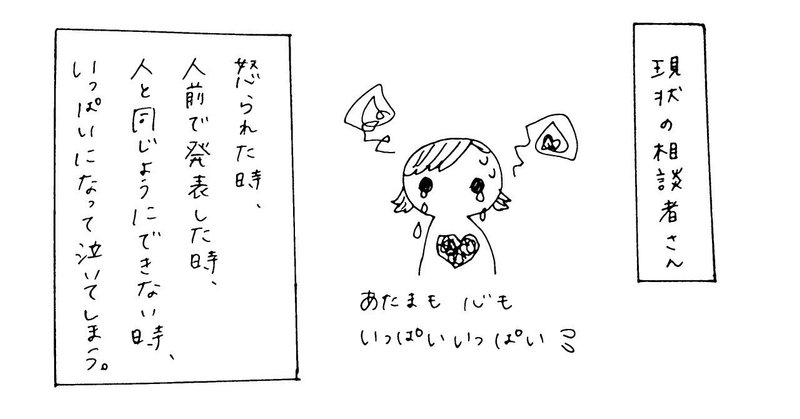 現状の相談者さん
あたまも 心も
いっぱいいっぱい
怒られた時、
人前で発表した時、
人と同じようにできない時、
いっぱいになって泣いてしまう。